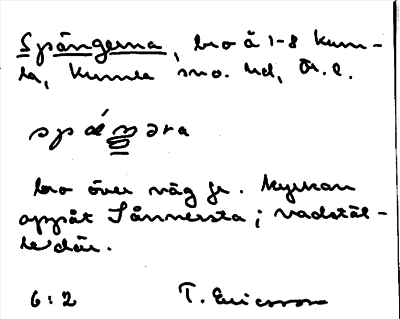 Spångerna, bro å 1-8 Kum-
la, Kumla sn o. hd, Ör. l.
spáŋəra
bro över väg fr. Kyrkan
uppåt Sånnersta; vadstäl-
le där.
6:2 T. Ericsson